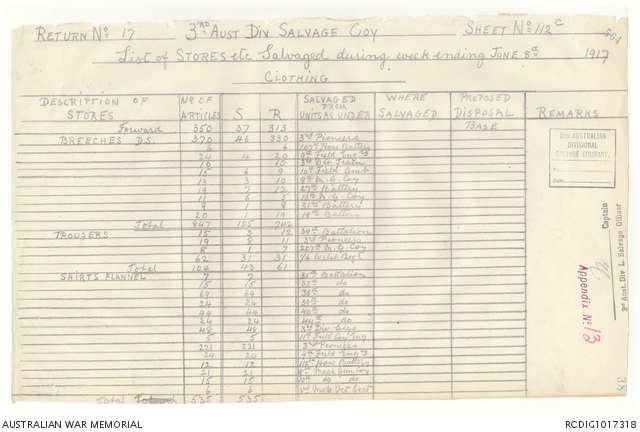 RETURN No 17 3RD AUST DIV SALVAGE COY SHEET No 112 C
List of STORES etc Salvaged during week ending JUNE 8th 1917
CLOTHING
DESCRIPTION OF STORES No OF ARTICLES S R SALVAGED FROM UNITS AS UNDER WHERE SALVAGED PROPOSED DISPOSAL REMARKS
Forward 350 37 313 BASE
BREECHES D.S. 370 46 330 3rd Pioneers
6 6 107th How Battery
24 4 20 9th Field Eng'rs
10 10 3rd Div Train
15 6 9 10th Field Amb
13 3 10 9th M.G. Coy
19 7 12 27th Battery
11 6 5 M.G. Coy
9 1 8 31st Battery
20 1 19 18th Battery
Total 847 105 742
TROUSERS 15 3 12 34th Battalion
19 8 11 3rd Pioneers
8 1 7 207th M.G. Coy
62 31 31 Welsh Regt
Total 104 43 61
SHIRTS FLANNEL 7 7 35th Battalion
15 15 37th do
69 69 38th do
24 24 39th do
44 44 40th do
24 24 44th do
48 48 3rd Div Sigs
5 5 11th Field Coy Eng
221 221 3rd Pioneers
24 24 9th Field Eng'rs
12 12 How Battery
21 21 Mach Gun Coy
15 15 do do
6 6 Mob Vet Sect
Total Forward 535 535
3RD AUSTRALIAN
DIVISIONAL
SALVAGE COMPANY.
Captain
3rd Aust. Div L. Salvage Officer
Appendix No 13
38
AUSTRALIAN WAR MEMORIAL
RCDIG1017318